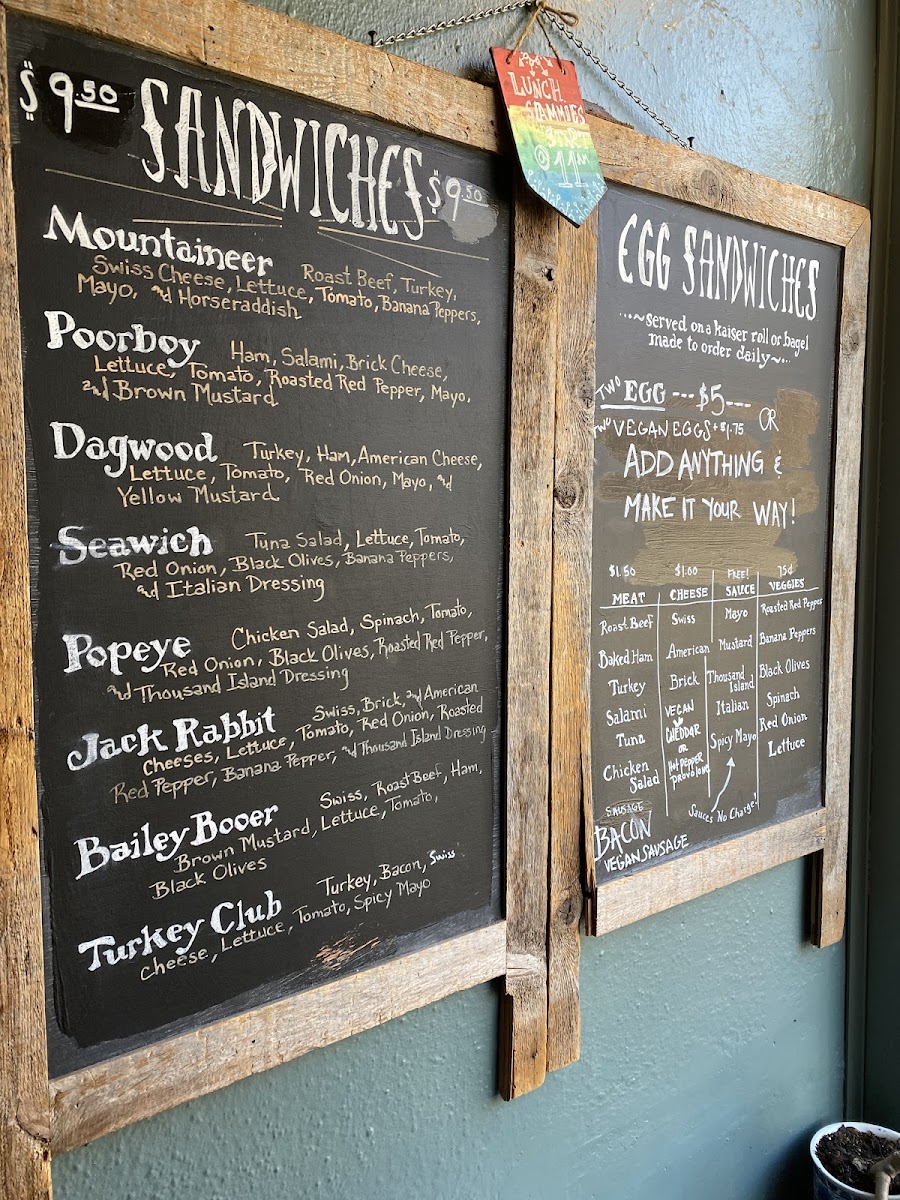 $9.50 SANDWICHES $9.50
Mountaineer Roast Beef, Turkey,
Swiss Cheese, Lettuce, Tomato, Banana Peppers,
Mayo, and Horseraddish
Poorboy Ham, Salami, Brick Cheese,
Lettuce, Tomato, Roasted Red Pepper, Mayo,
and Brown Mustard
Dagwood Turkey, Ham, American Cheese,
Lettuce, Tomato, Red Onion, Mayo, and
Yellow Mustard
Seawich Tuna Salad, Lettuce, Tomato,
Red Onion, Black Olives, Banana Peppers,
and Italian Dressing
Popeye Chicken Salad, Spinach, Tomato,
Red Onion, Black Olives, Roasted Red Pepper,
and Thousand Island Dressing
Jack Rabbit Swiss, Brick, and American
Cheeses, Lettuce, Tomato, Red Onion, Roasted
Red Pepper, Banana Pepper, and Thousand Island Dressing
Bailey Booer Swiss, Roast Beef, Ham,
Brown Mustard, Lettuce, Tomato,
Black Olives
Turkey Club Turkey, Bacon, Swiss
Cheese, Lettuce, Tomato, Spicy Mayo
LUNCH
SAMMOES
@ 11AM
EGG SANDWICHES
...~served on a kaiser roll or bagel
made to order daily~...
TWO EGG --- $5---
TWO VEGAN EGGS + $1.75 OR
ADD ANYTHING &
MAKE IT YOUR WAY!
$1.50 $1.00 FREE! 75¢
MEAT CHEESE SAUCE VEGGIES
Roast Beef Swiss Mayo Roasted Red Pepper
Baked Ham American Mustard Banana Peppers
Turkey Brick Thousand Island Black Olives
Salami VEGAN CHEDDAR OR Hot Pepper Provolone Italian Spinach
Tuna Spicy Mayo Red Onion
Chicken Salad Lettuce
SAUSAGE Sauces No Charge!
BACON
VEGAN SAUSAGE